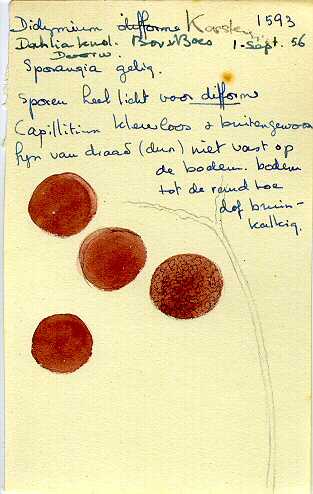 Didymium difforme Karsten 1593
Dahlia knol. Bov. Boes 1-Sept. 56
Doorw.
Sporangia gelig.
Sporen heel licht voor difforme
Capillitium kleurloos & buitengewoon
fijn van draad (dun) niet vast op
de bodem. bodem
tot de rand toe
dof bruin-
kalkig.